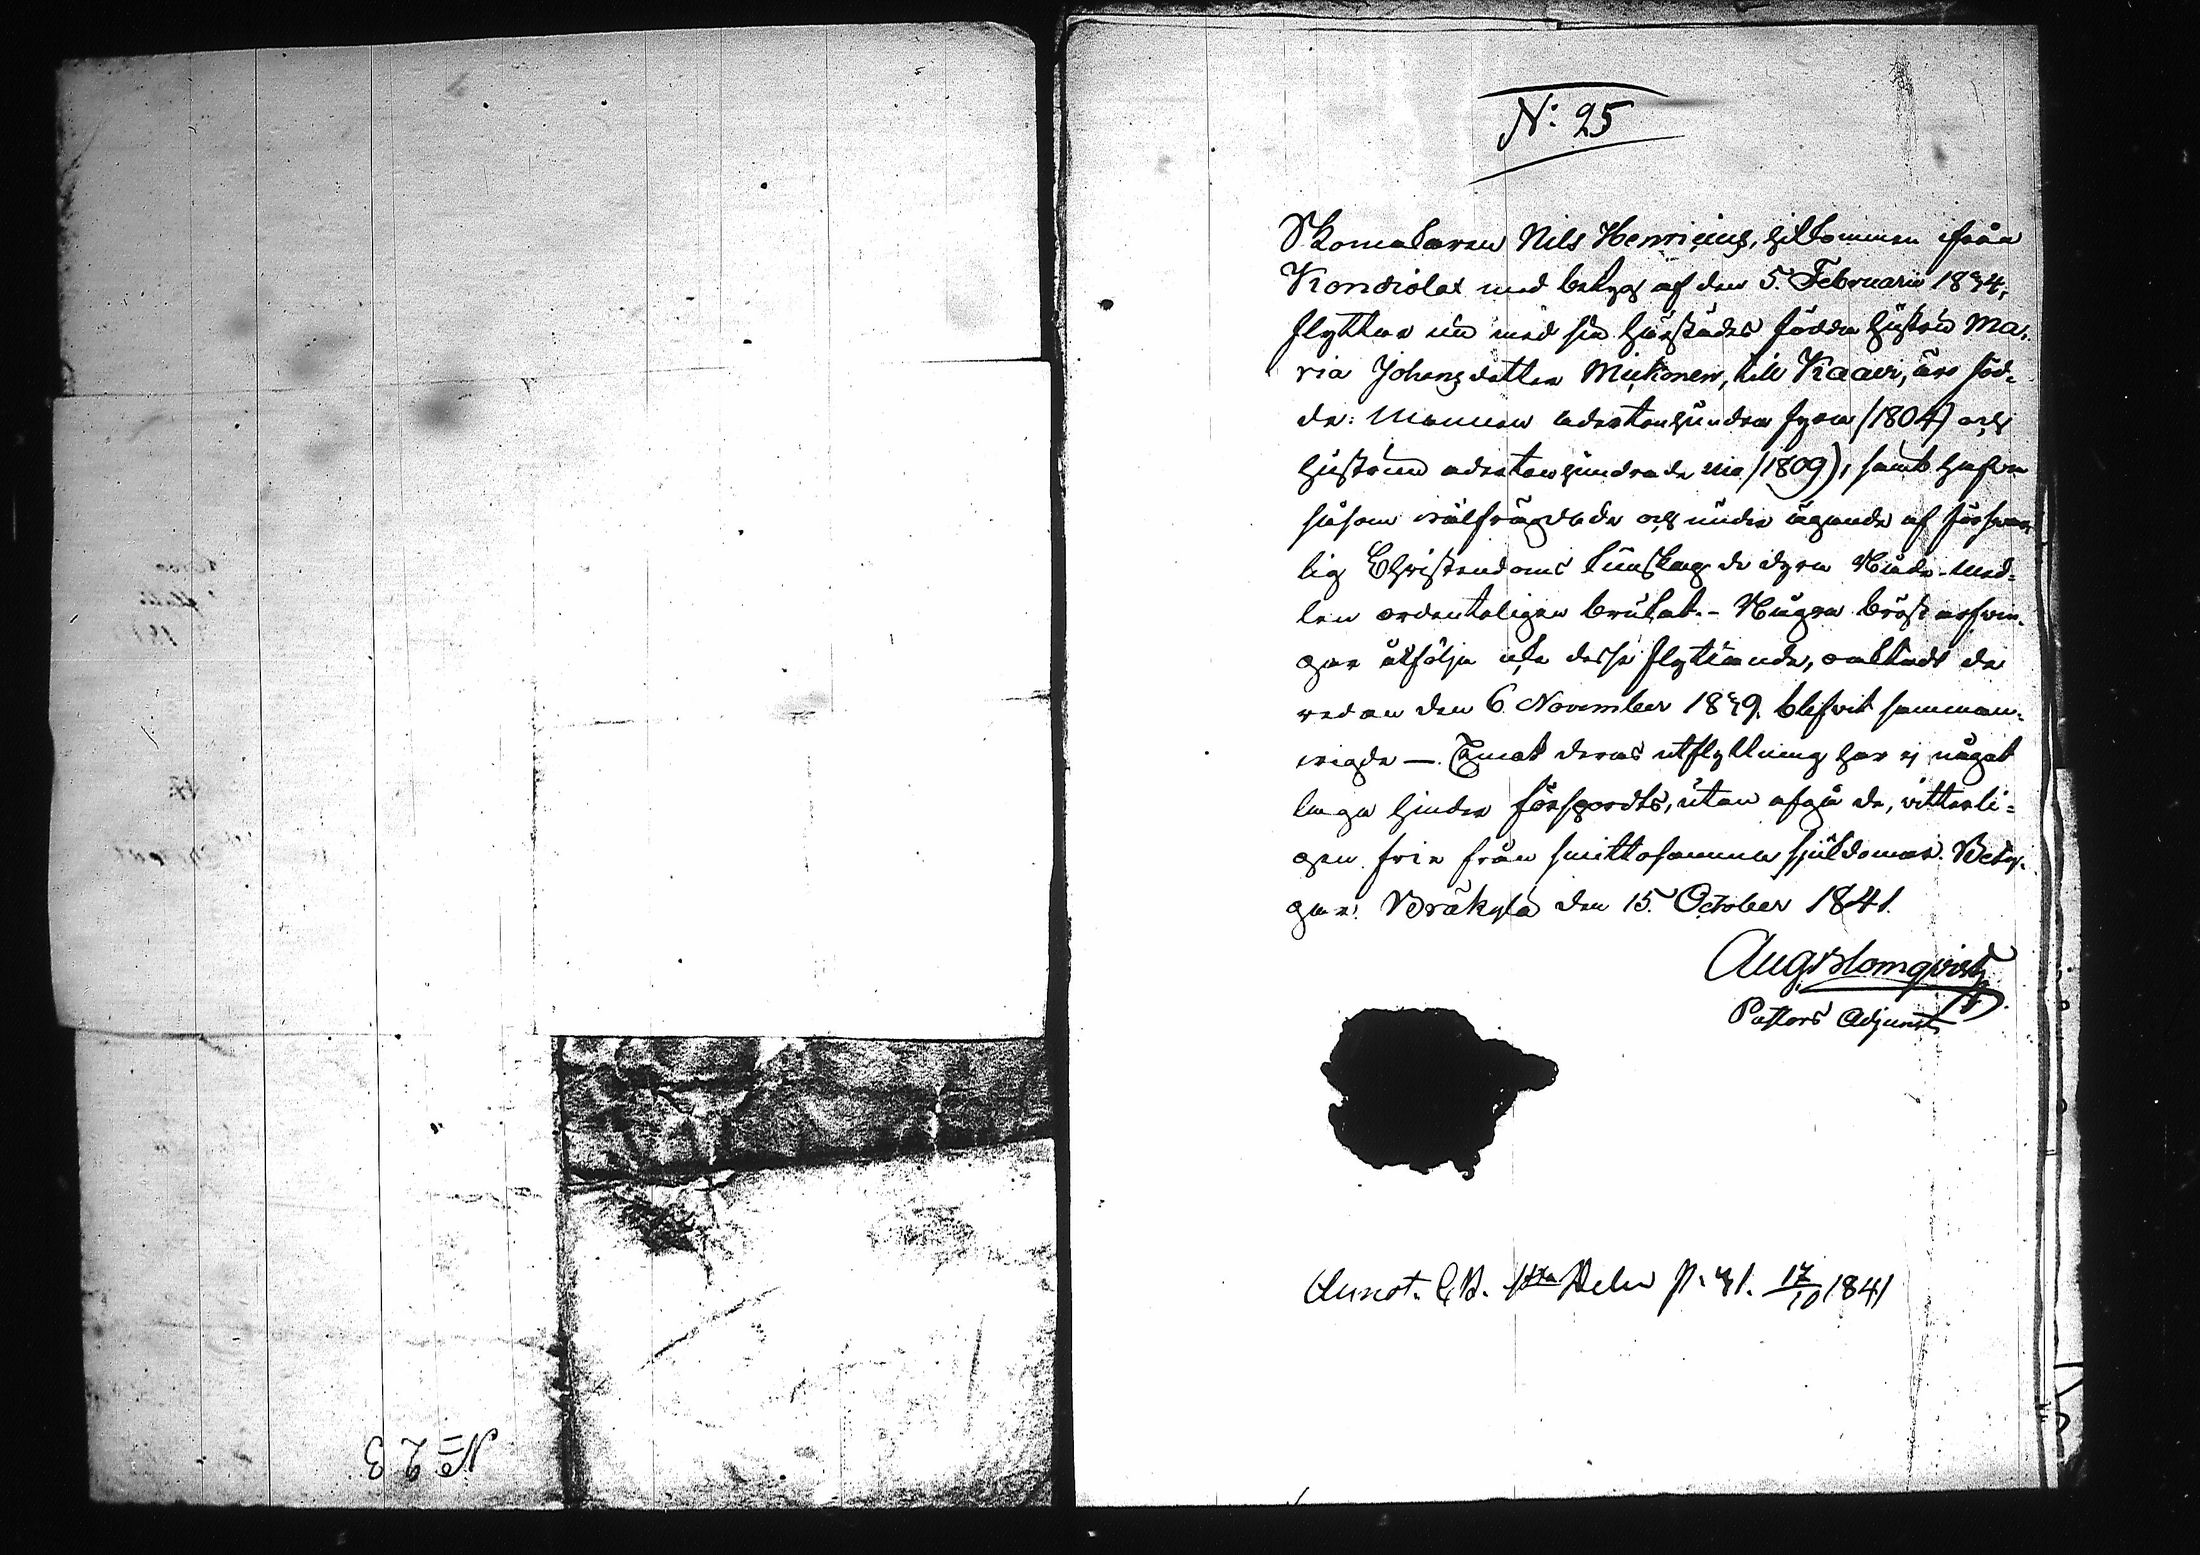 N: 25
Skomakaren Nils Henricius, hitkommen ifrån
Kondiolax med betyg af den 5. Februarii 1834,
flyttar nu med sin härstädes födda hustru Ma-
ria Johansdotter Miikonen, till Kaavi, äro föd-
de: Mannen adertonhundra fyra (1804) och
hustrun adertonhundrade nio (1809), samt hafva
såsom välfrägdade och under ägande af försvar-
lig Christendoms kunskap de dyra Nåde-med-
len ordenteligen brukat. - Några bröst arfvin-
gar åtfölja icke desse flyttande, enkedt de
redan den 6 November 1839. blifvit samman-
vigde —. Emot deras utflyttning har ej något
laga hinder försports, utan afgå de, vitterli=
gen frie från smittosamma sjukdomar. Bety-
gar. Bräkylä den 15. October 1841.
Aug Blomqvist
Pastors Adjunct
Annot. C.B. 1sta Delen p. 31. 17/10 1841
N: 23